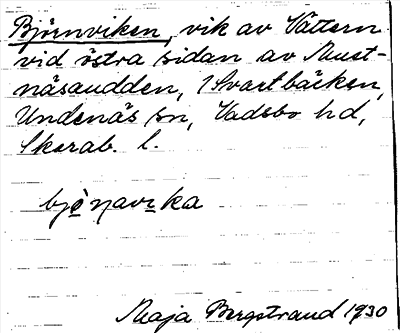 Björnviken, vik av Vättern
vid östra sidan av Must-
näsaudden, i Svartbäcken,
Undenäs sn, Vadsbo hd,
Skarab. l.
bjò̱ṇavi̱ka
Maja Bergstrand 1930